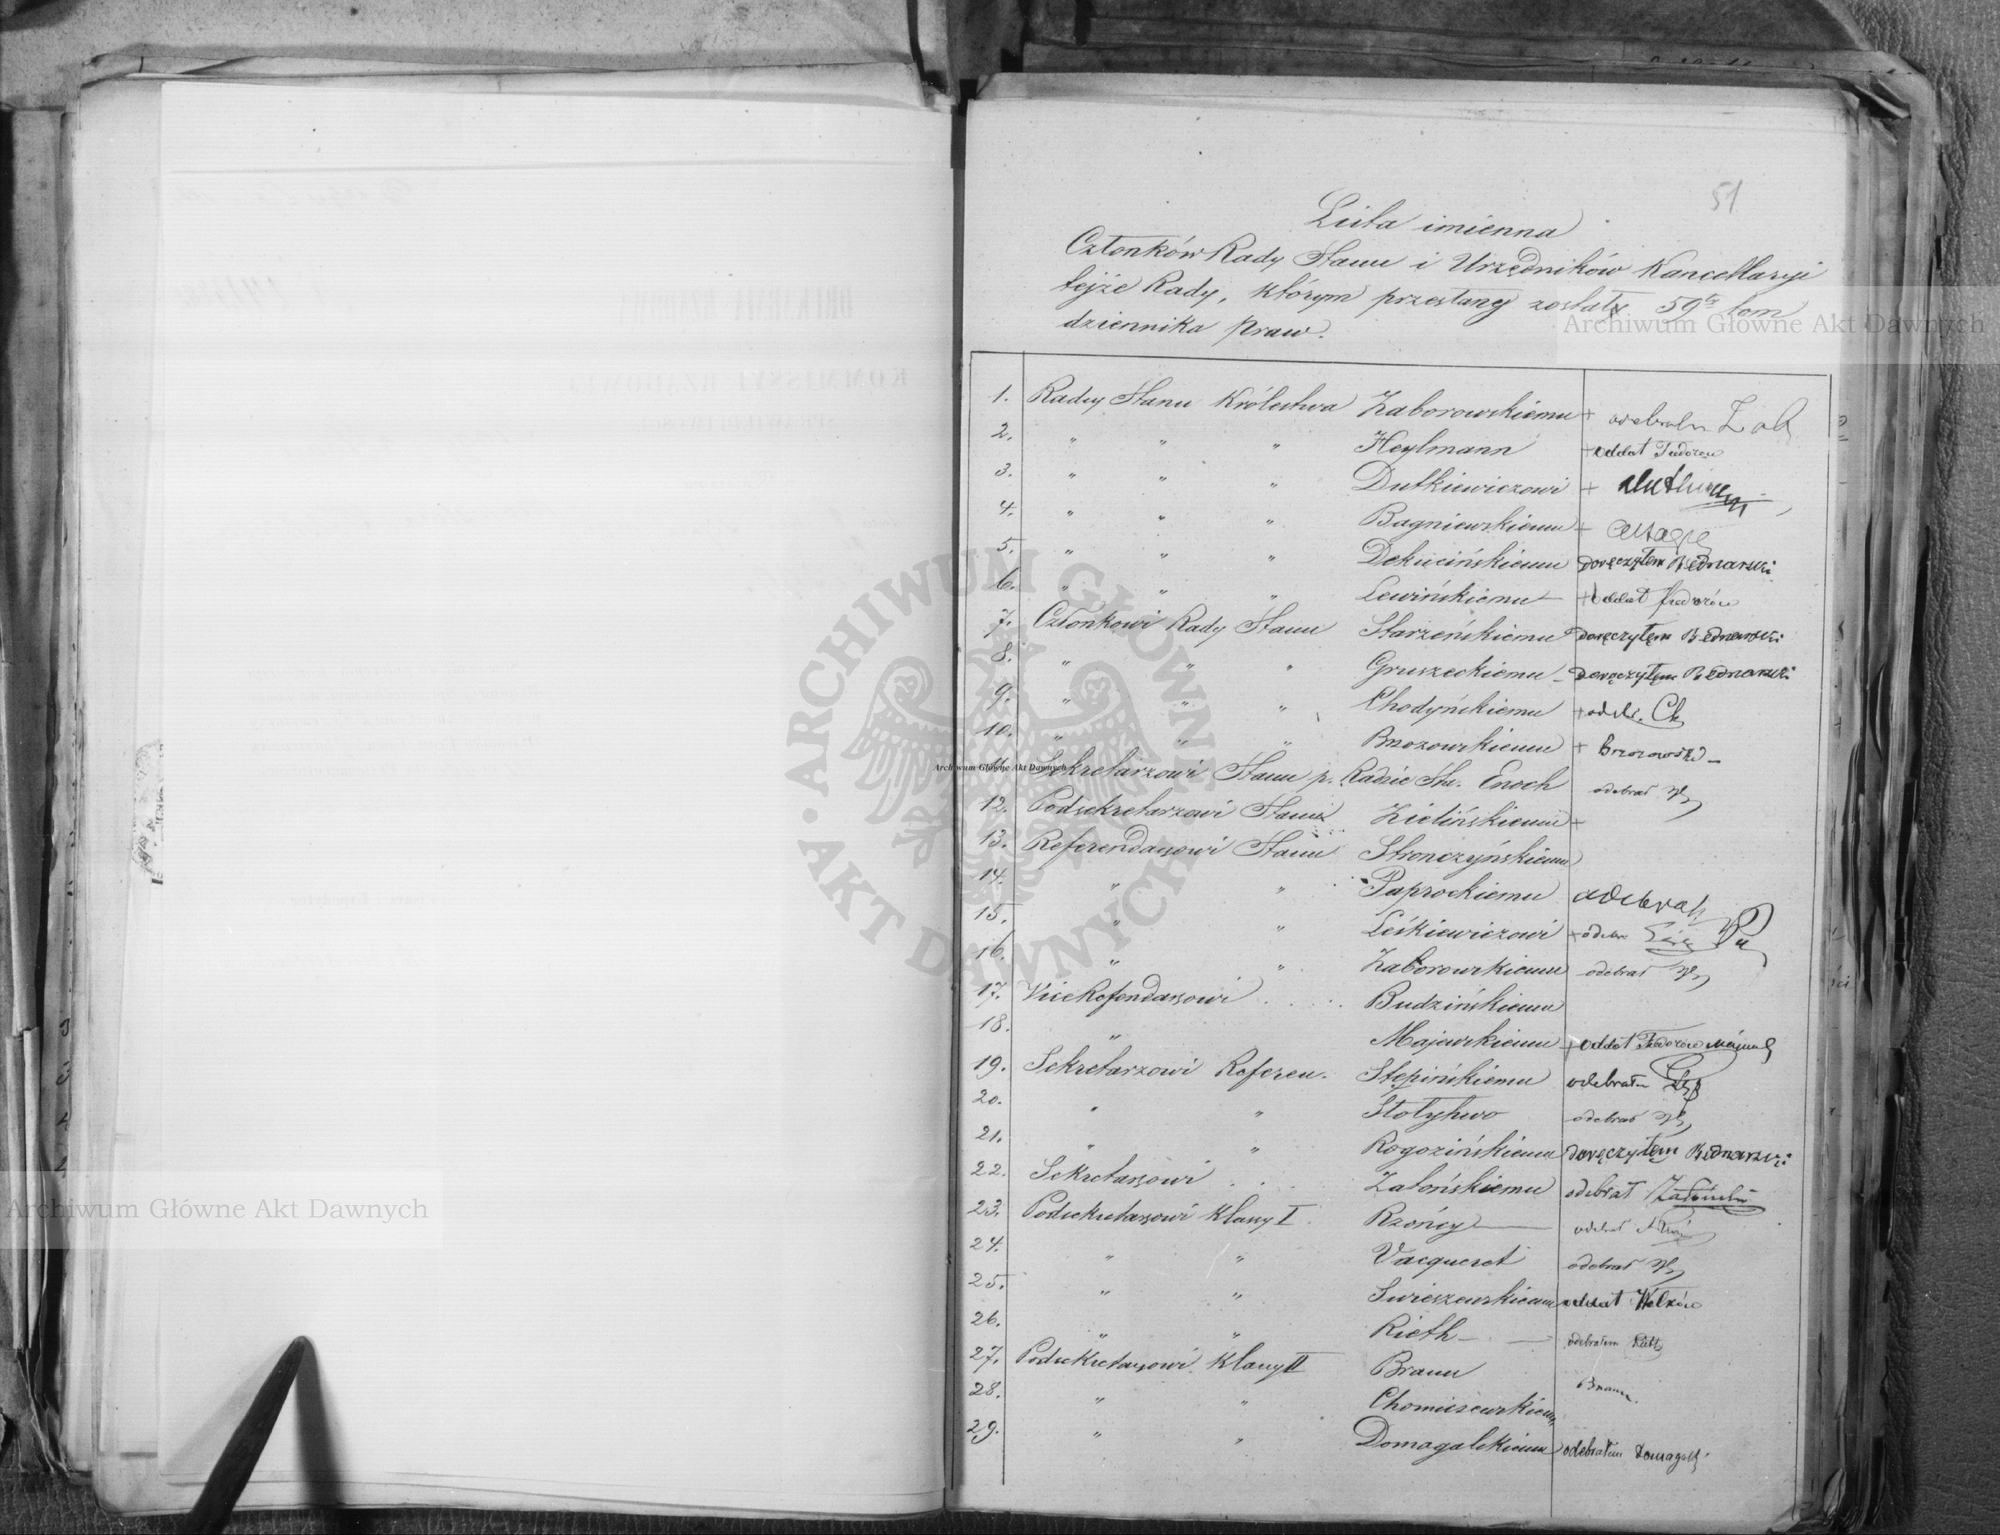 51
Lista imienna
Członków Rady Stanu i Urzędników Kancellaryi
tejże Rady, którym przesłany został 59ty tom
dziennika praw.
1. Radcy Stanu Królestwa Zaborowskiemu + odebrałem Zab
2. " " " Heylmann + oddał Fedorow
3. " " " Dutkiewiczowi +
4. " " " Bagniewskiemu +
5. " " " Dekucińskiemu doręczyłem Bednarski
6. " " " Lewińskiemu + oddał Fedorow
7. Członkowi Rady Stanu Starzeńskiemu doręczyłem Bednarski
8. " " " Gruszeckiemu doręczyłem Bednarski
9. " " " Chodyńskiemu + odebr. Ch
10. " " " Brzozowskiemu + Brzozowski
11. Sekretarzowi Stanu p. Radzie Sta. Enoch odebrał
12. Podsekretarzowi Stanu Zielińskiemu +
13. Referendarzowi Stanu Stronczyńskiemu
14. " " Paprockiemu odebrał
15. " " Leśkiewiczowi + odebr
16. " " Zaborowskiemu odebrał
17. Vice Referendarzowi . . . . Budzińskiemu
18. " Majewskiemu + oddał Fedorow
19. Sekretarzowi Referen. Stępińskiemu odebrałem
20. " " Stołyhwo odebrał
21. " " Rogozińskiemu doręczyłem Bednarski
22. Sekretarzowi . . . Załońskiemu odebrał Załoński
23. Podsekretarzowi Klassy I. Rzońcy odebrał
24. " " Vacqueret odebrał
25. " " Swieszewskiemu oddał
26. " " Rieth odebrałem Rieth
27. Podsekretarzowi Klassy II Braun Braun.
28. " " Chomiszewskiemu
29. " " Domagalskiemu odebrałem Domagalski
Archiwum Główne Akt Dawnych
Archiwum Główne Akt Dawnych
Archiwum Główne Akt Dawnych
ARCHIWUM GŁÓWNE AKT DAWNYCH